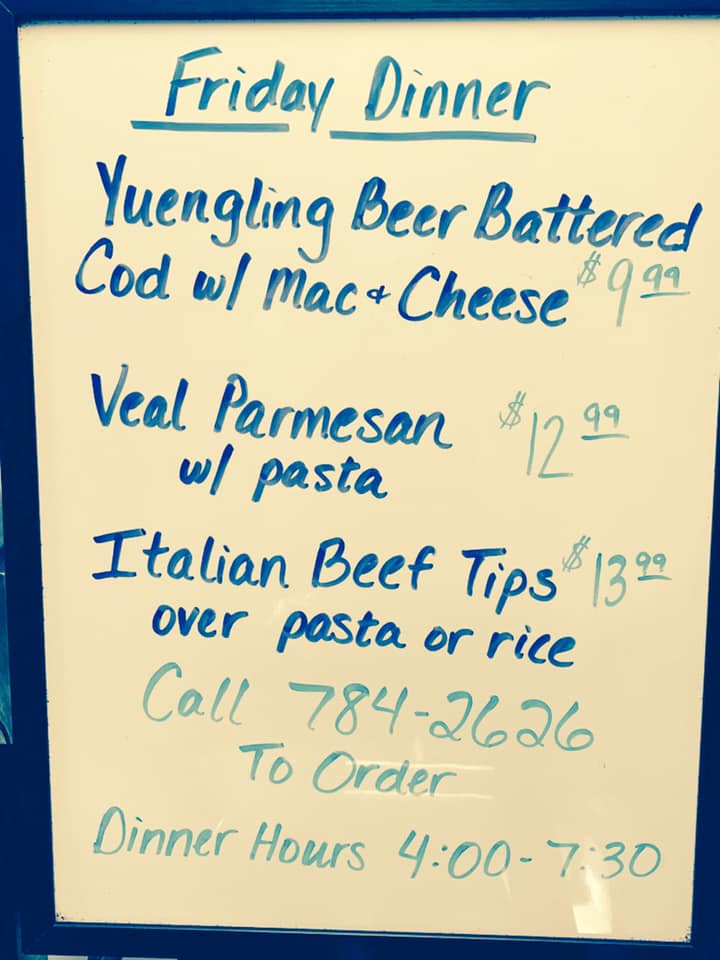 Friday Dinner
Yuengling Beer Battered
Cod w/ Mac & Cheese $9.99
Veal Parmesan $12.99
w/ pasta
Italian Beef Tips $13.99
over pasta or rice
Call 784-2626
To Order
Dinner Hours 4:00-7:30